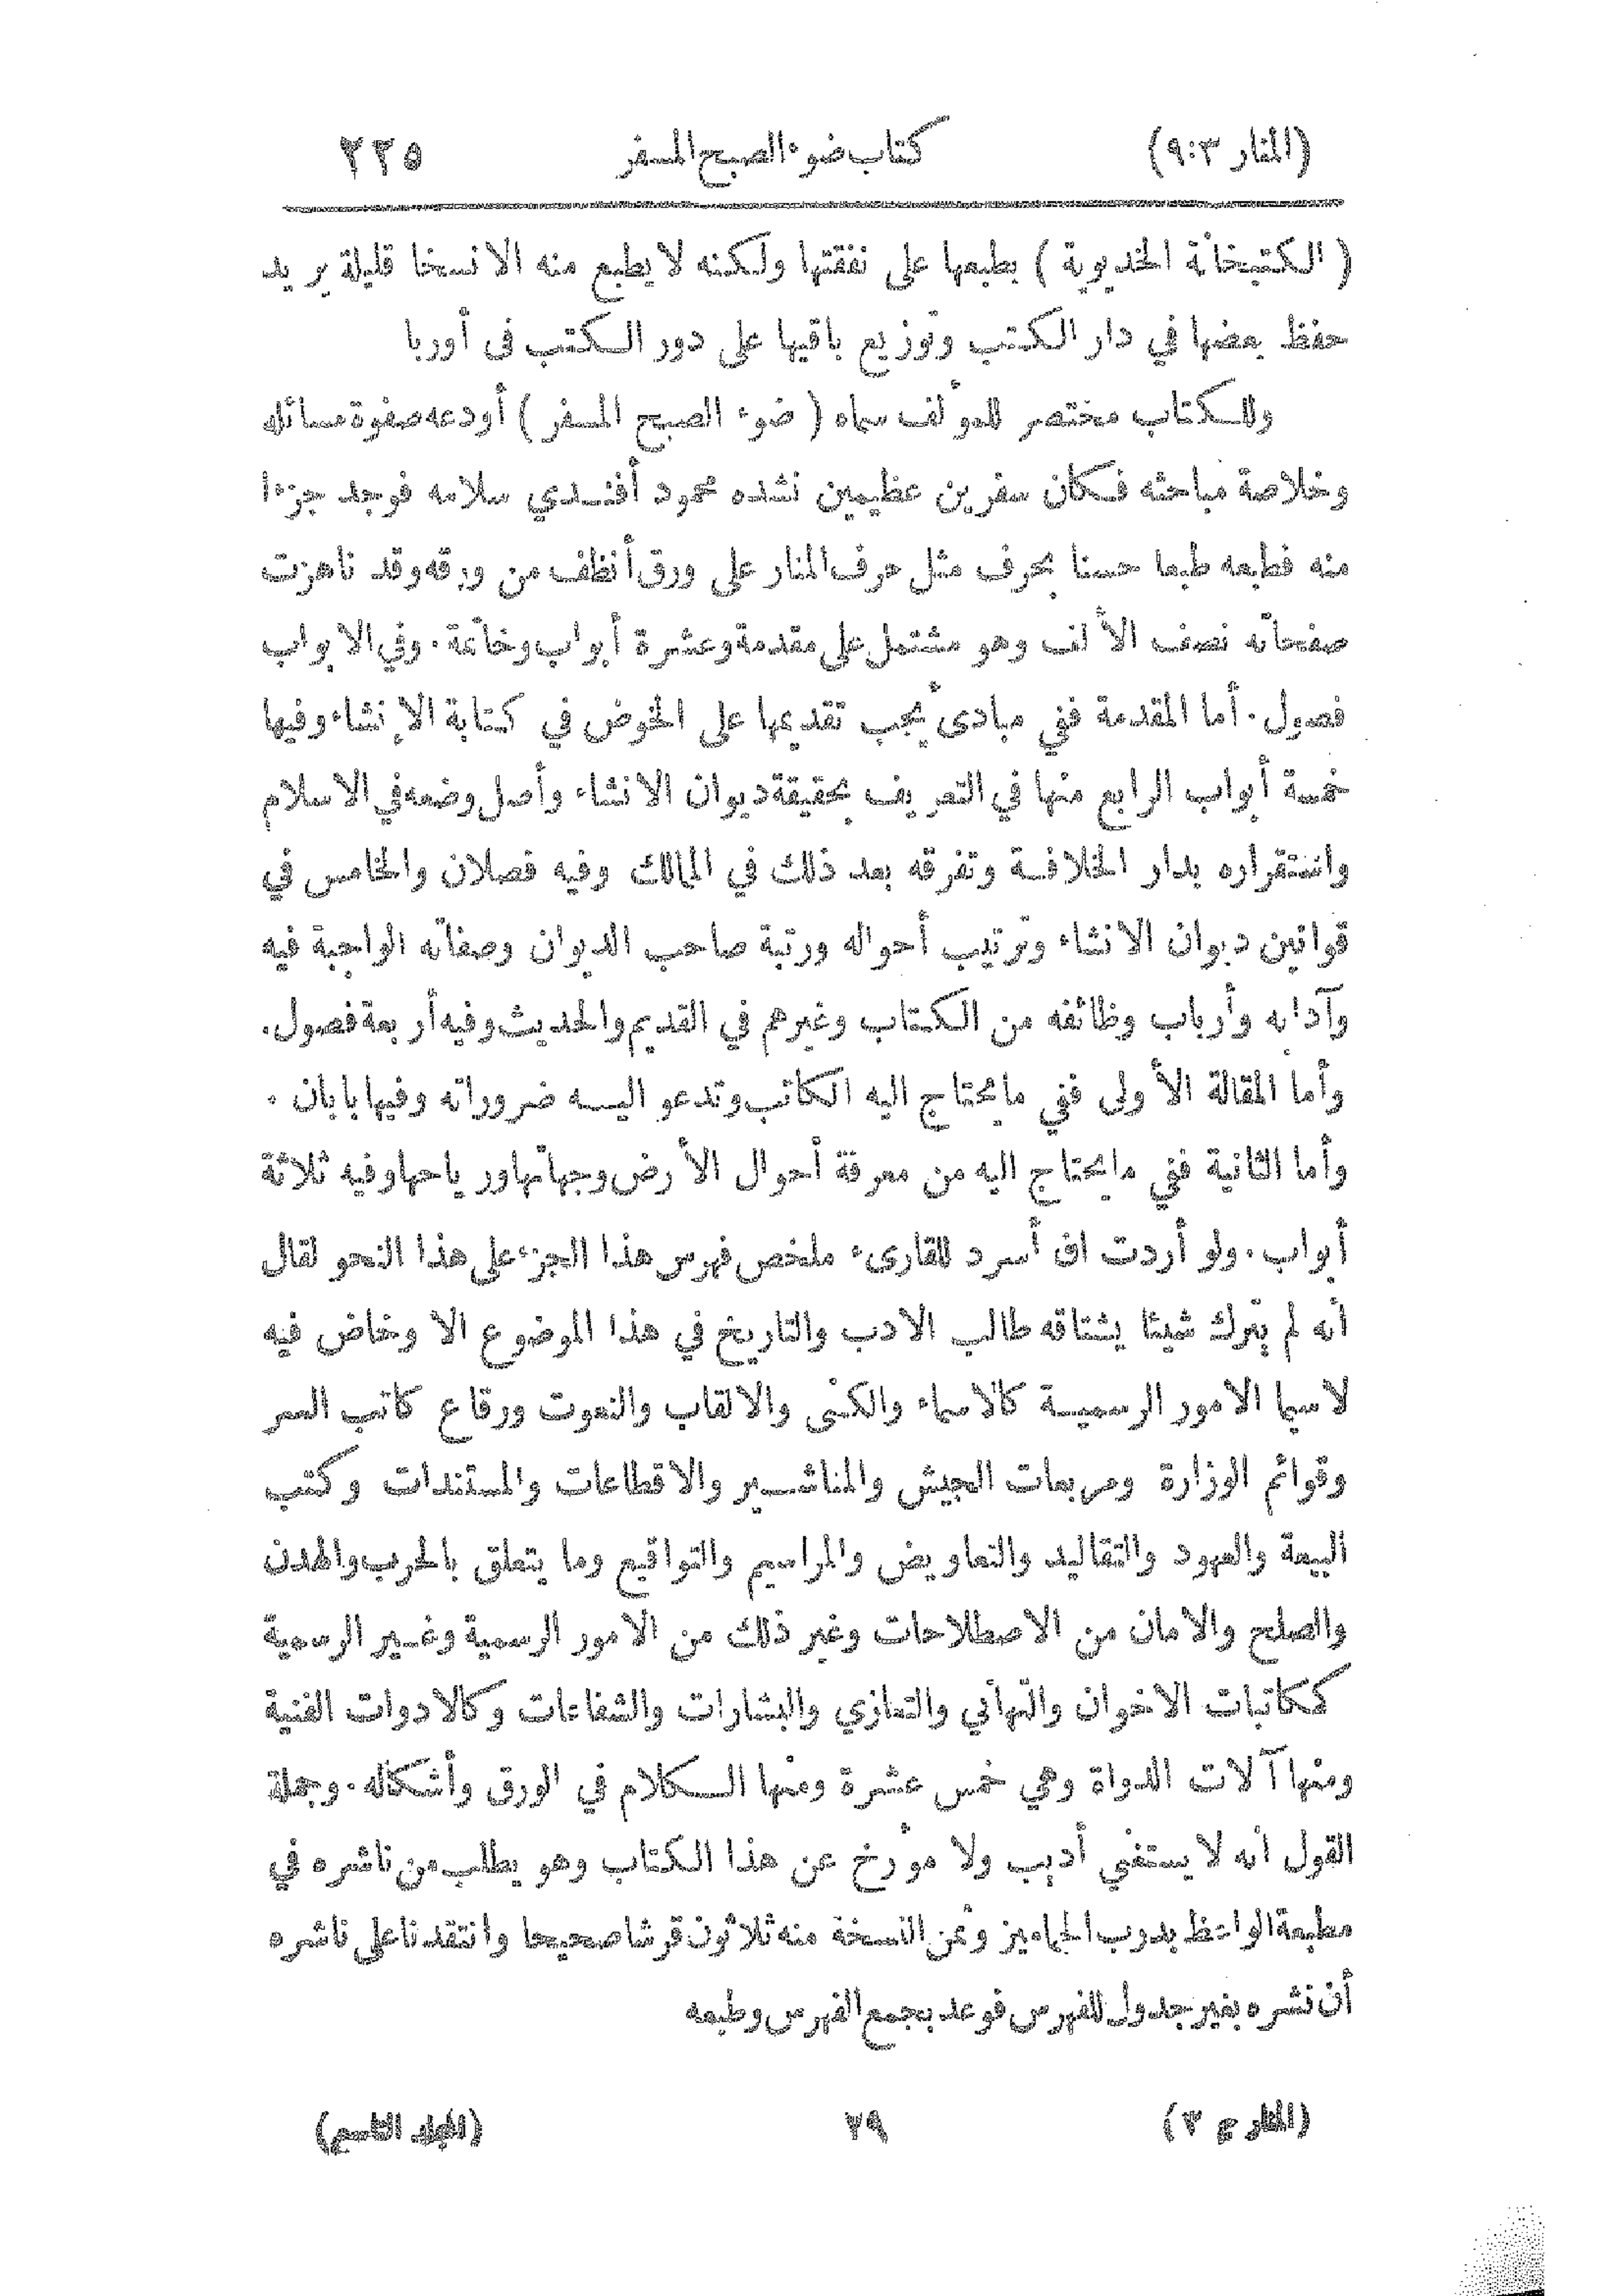 (المنار ٩:٣) كتاب ضوء الصبح المسفر ٢٢٥
( الكتبخانة الخديوية ) بطبعها على نفقتها ولكنه لا يطبع منه الا نسخا قليلة يريد
حفظ بعضها في دار الكتب وتوزيع باقيها على دور الكتب فى أوربا
وللكتاب مختصر للمؤلف سماه ( ضوء الصبح المسفر ) أودعه صفوة مسائله
وخلاصة مباحثه فكان سفرين عظيمين نشده محمود أفندي سلامه فوجد جزءا
منه فطبعه طبعا حسنا بحرف مثل حرف المنار على ورق أنظف من ورقه وقد ناهزت
صفحاته نصف الألف وهو مشتمل على مقدمة وعشرة أبواب وخاتمة . وفي الابواب
فصول . أما المقدمة ففي مبادئ يجب تقديمها على الخوض في كتابة الإنشاء وفيها
خمسة أبواب الرابع منها في التعريف بحقيقة ديوان الانشاء وأصل وضعه في الاسلام
واستقراره بدار الخلافة وتفرقه بعد ذلك في الممالك وفيه فصلان والخامس في
قوانين ديوان الانشاء وترتيب أحواله ورتبة صاحب الديوان وصفاته الواجبة فيه
وآدابه وأرباب وظائفه من الكتاب وغيرهم في القديم والحديث وفيه أربعة فصول .
وأما المقالة الأولى ففي ما يحتاج اليه الكاتب وتدعو اليه ضروراته وفيها بابان .
وأما الثانية ففي ما يحتاج اليه من معرفة أحوال الأرض وجهاتها ورياحها وفيه ثلاثة
أبواب . ولو أردت ان أسرد للقارىء ملخص فهرس هذا الجزء على هذا النحو لقال
أنه لم يترك شيئا يشتاقه طالب الادب والتاريخ في هذا الموضوع الا وخاض فيه
لا سيما الامور الرسمية كالاسماء والكنى والالقاب والنعوت ورقاع كاتب السر
وقوائم الوزارة ومربعات الجيش والمناشير والاقطاعات والمستندات وكتب
البيعة والعهود والتقاليد والتعاويض والمراسيم والتواقيع وما يتعلق بالحرب والهدن
والصلح والامان من الاصطلاحات وغير ذلك من الامور الرسمية وغير الرسمية
ككاتبات الاخوان والتهاني والتعازي والبشارات والشفاعات وكالادوات الفنية
ومنها آلات الدواة وهي خمس عشرة ومنها الكلام في الورق وأشكاله . وجملة
القول أنه لا يستغني أديب ولا مؤرخ عن هذا الكتاب وهو يطلب من ناشره في
مطبعة الواعظ بدرب الجماميز وثمن النسخة منه ثلاثون قرشا صحيحا وانتقدنا على ناشره
أن نشره بغير جدول للفهرس فوعد بجمع الفهرس وطبعه
(المنار ج ٣) ٢٩ (المجلد التاسع)